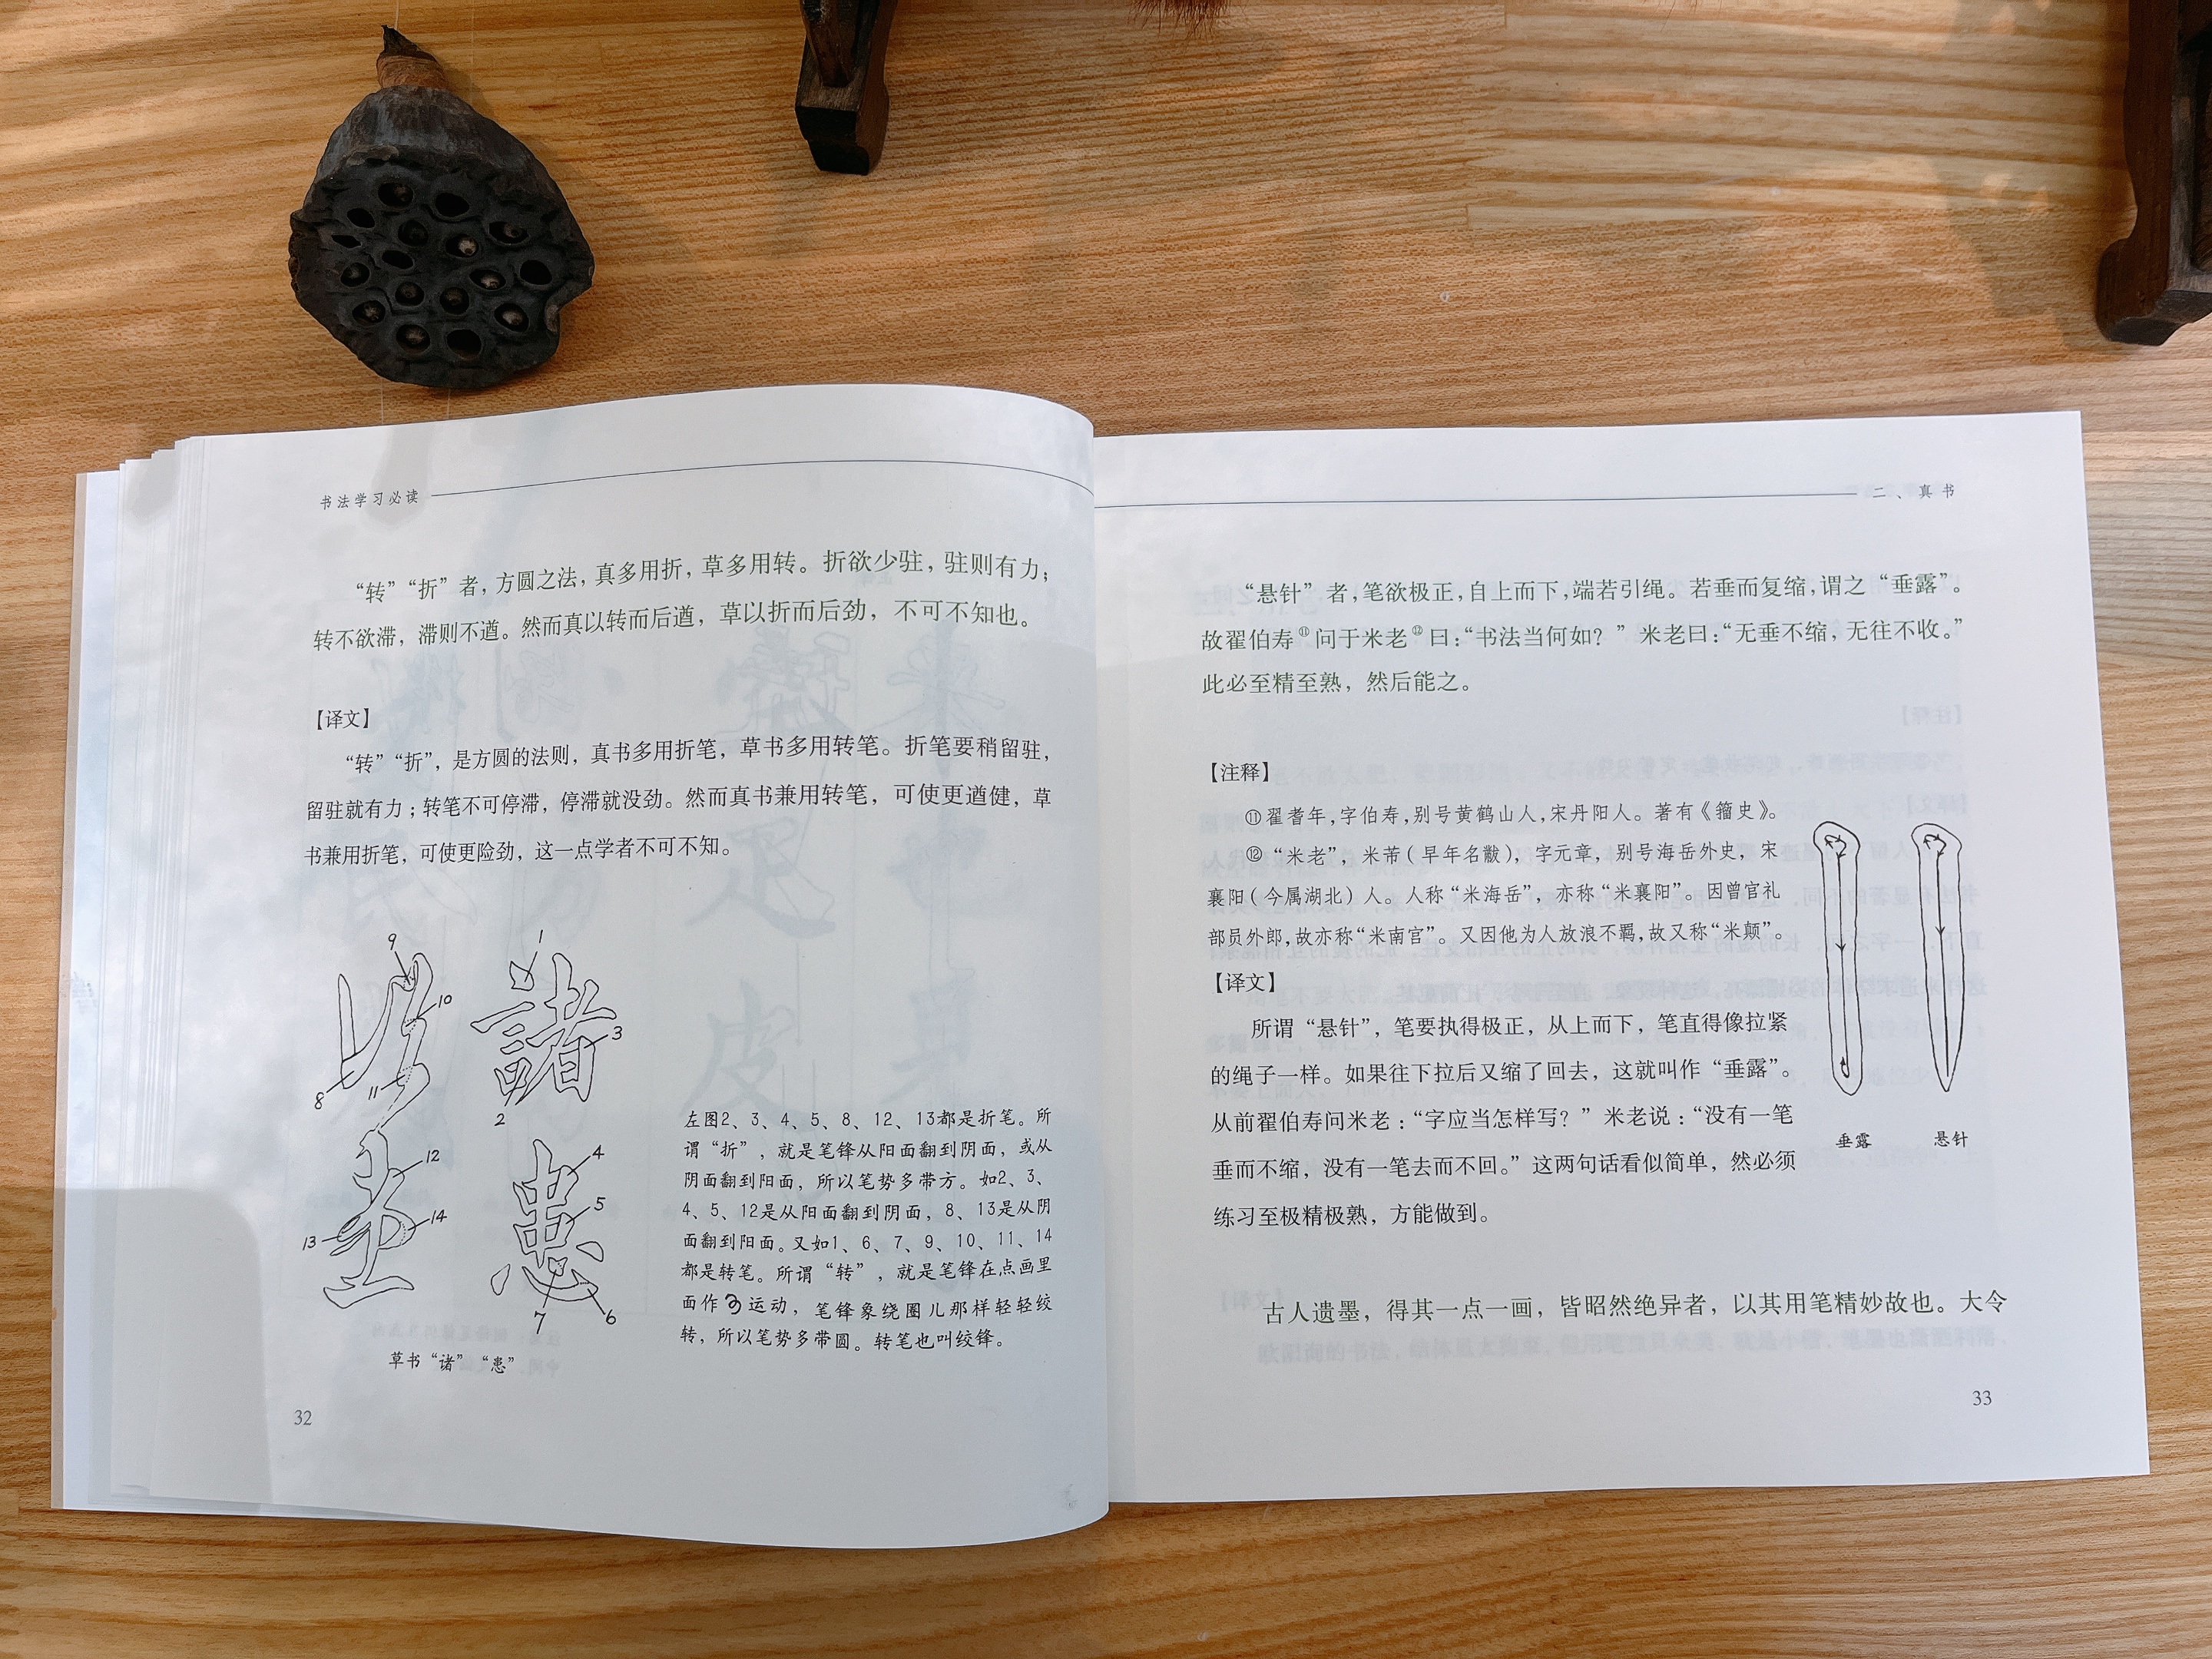 书法学习必读
“转”“折”者，方圆之法，真多用折，草多用转。折欲少驻，驻则有力；
转不欲滞，滞则不遒。然而真以转而后遒，草以折而后劲，不可不知也。
【译文】
“转”“折”，是方圆的法则，真书多用折笔，草书多用转笔。折笔要稍留驻，
留驻就有力；转笔不可停滞，停滞就没劲。然而真书兼用转笔，可使更遒健，草
书兼用折笔，可使更险劲，这一点学者不可不知。
9
1
10
3
8
11
2
12
4
5
13
14
7
6
諸
患
草书“诸”“患”
左图2、3、4、5、8、12、13都是折笔。所
谓“折”，就是笔锋从阳面翻到阴面，或从
阴面翻到阳面，所以笔势多带方。如2、3、
4、5、12是从阳面翻到阴面，8、13是从阴
面翻到阳面。又如1、6、7、9、10、11、14
都是转笔。所谓“转”，就是笔锋在点画里
面作运动，笔锋象绕圈儿那样轻轻绞
转，所以笔势多带圆。转笔也叫绞锋。
32
二、真书
“悬针”者，笔欲极正，自上而下，端若引绳。若垂而复缩，谓之“垂露”。
故翟伯寿⑪问于米老⑫曰：“书法当何如？”米老曰：“无垂不缩，无往不收。”
此必至精至熟，然后能之。
【注释】
⑪翟耆年，字伯寿，别号黄鹤山人，宋丹阳人。著有《籀史》。
⑫“米老”，米芾（早年名黻），字元章，别号海岳外史，宋
襄阳（今属湖北）人。人称“米海岳”，亦称“米襄阳”。因曾官礼
部员外郎，故亦称“米南宫”。又因他为人放浪不羁，故又称“米颠”。
【译文】
所谓“悬针”，笔要执得极正，从上而下，笔直得像拉紧
的绳子一样。如果往下拉后又缩了回去，这就叫作“垂露”。
从前翟伯寿问米老：“字应当怎样写？”米老说：“没有一笔
垂而不缩，没有一笔去而不回。”这两句话看似简单，然必须
练习至极精极熟，方能做到。
垂露
悬针
古人遗墨，得其一点一画，皆昭然绝异者，以其用笔精妙故也。大令
33